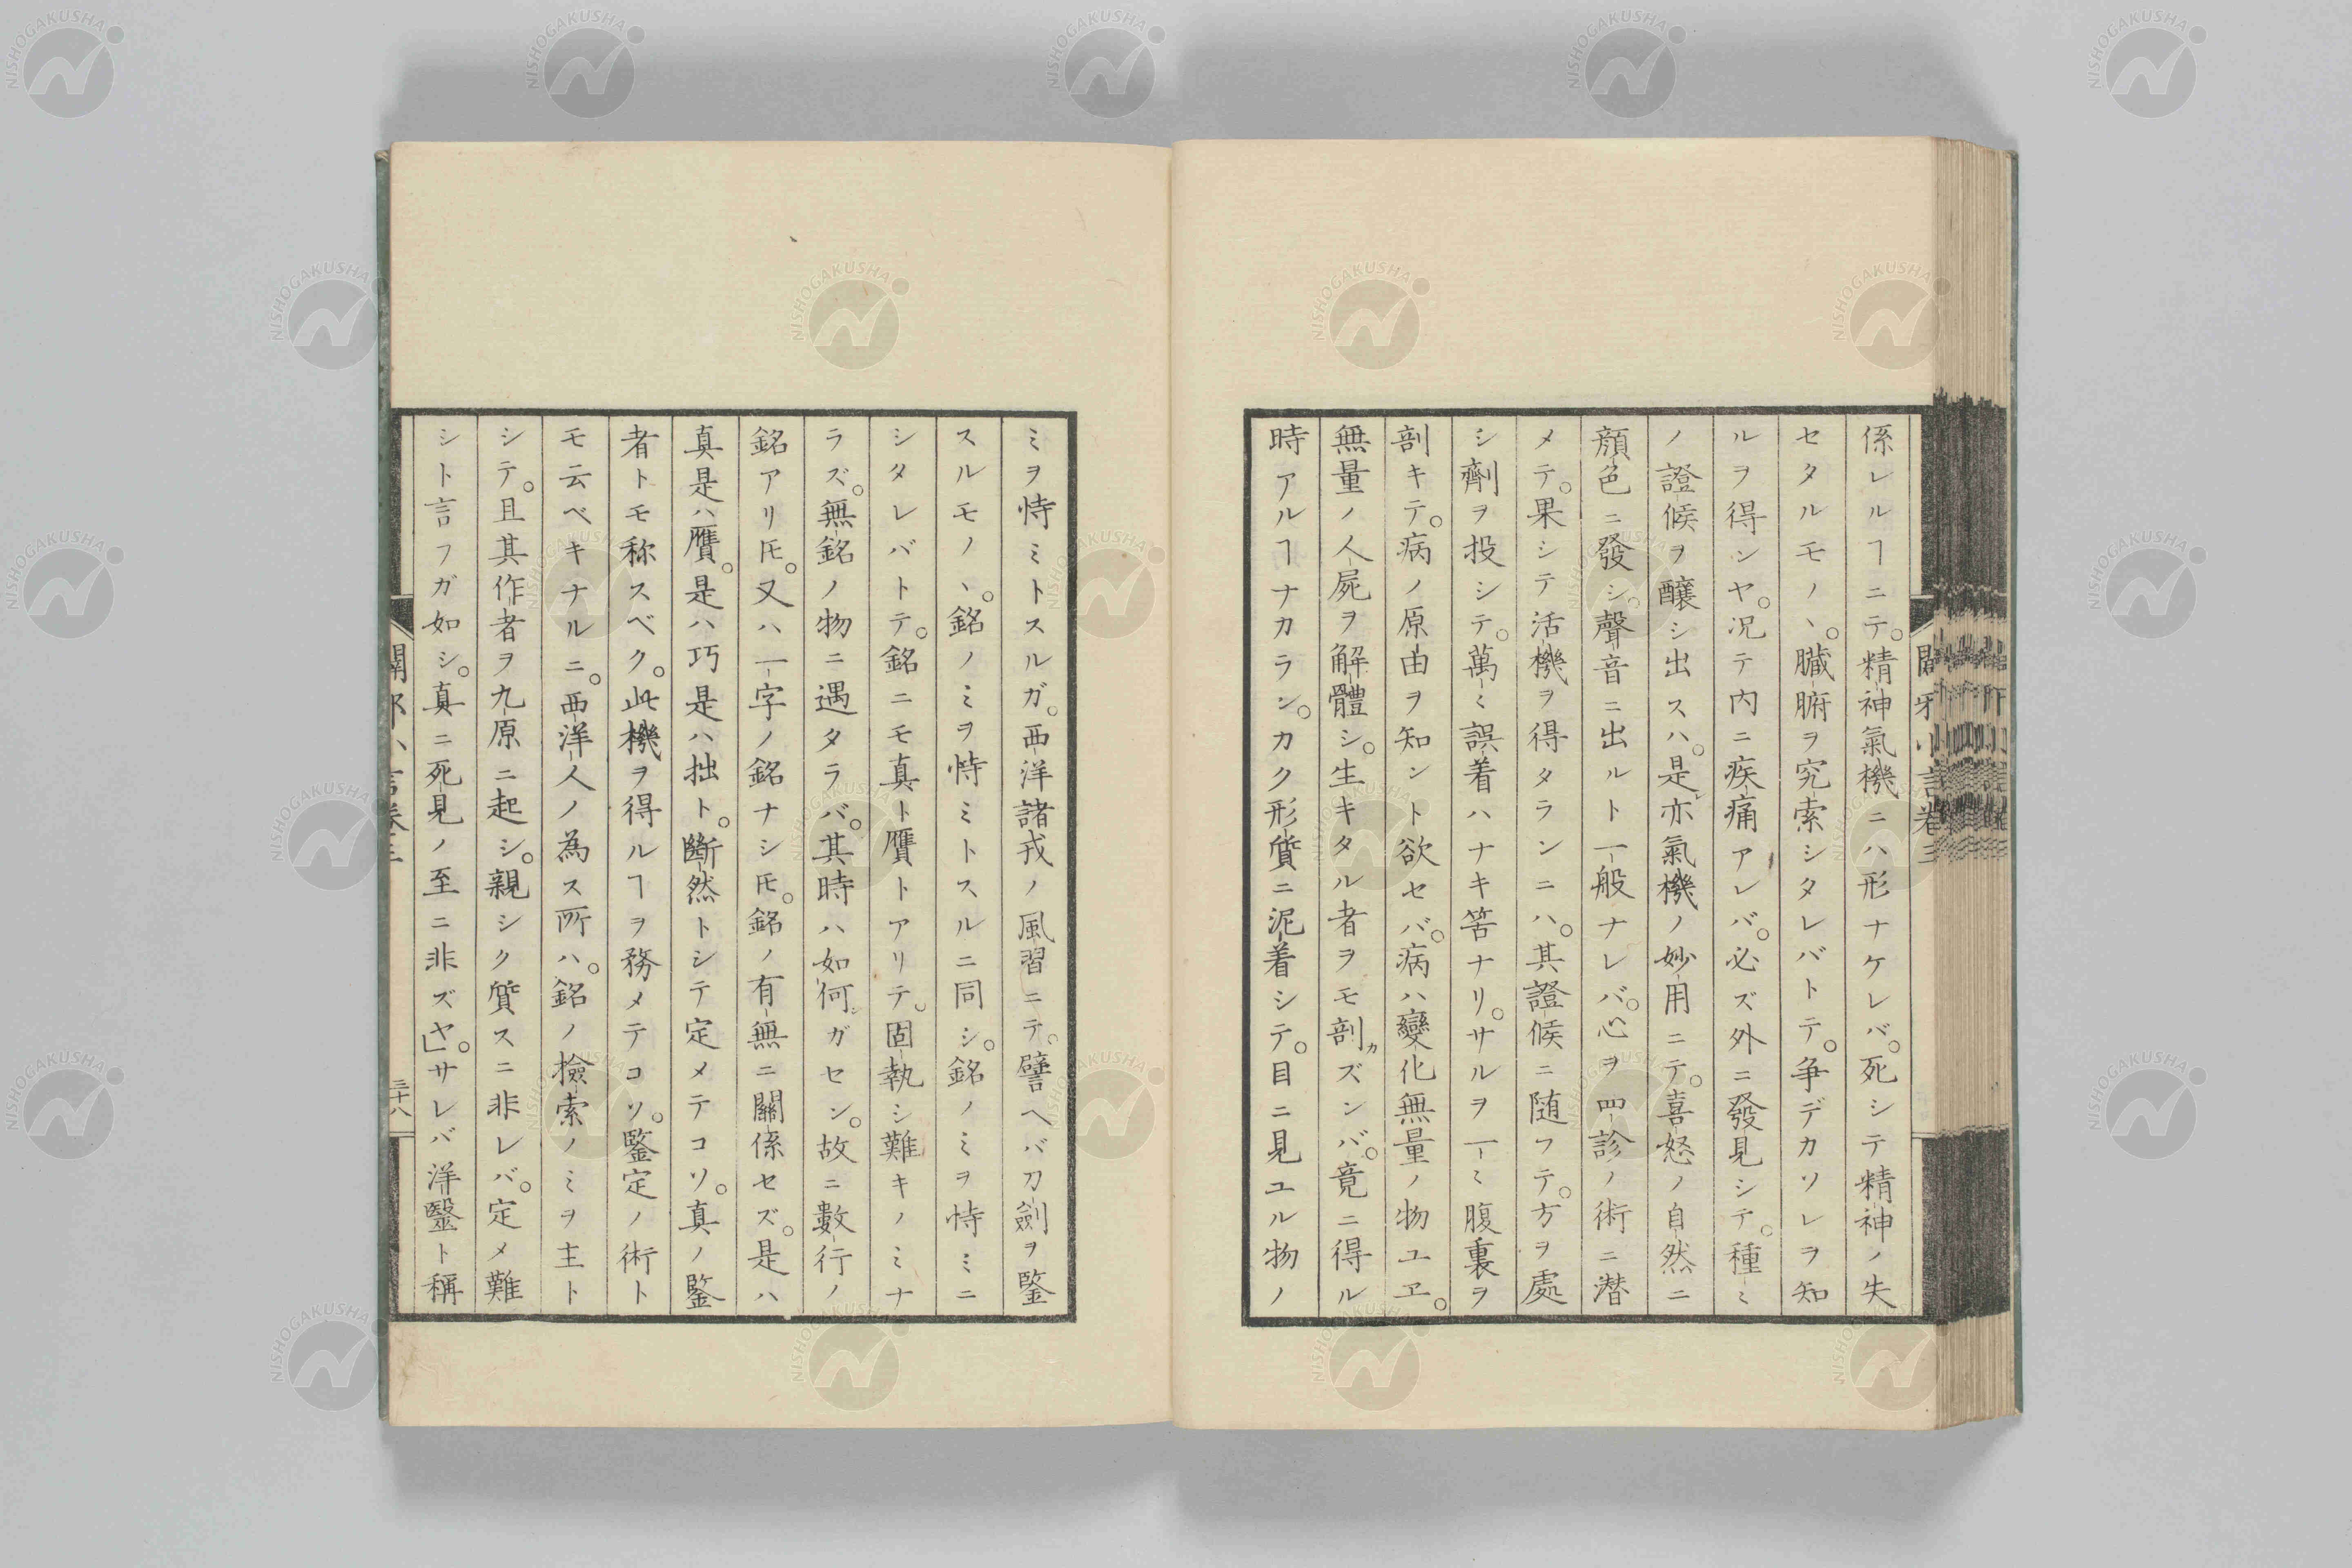 係レルヿニテ。精神氣機ニハ形ナケレバ。死シテ精神ノ失
セタルモノヽ。臓腑ヲ究索シタレバトテ。争デカソレヲ知
ルヲ得ンヤ。况テ内ニ疾痛アレバ。必ズ外ニ發見シテ。種〻
ノ證候ヲ釀シ出スハ。是亦氣機ノ妙用ニテ。喜怒ノ自然ニ
顔色ニ發シ。聲音ニ出ルト一般ナレバ。心ヲ四診ノ術ニ潜
メテ。果シテ活機ヲ得タランニハ。其證候ニ随フテ。方ヲ處
シ劑ヲ投シテ。萬〻誤着ハナキ筈ナリ。サルヲ一〻腹裏ヲ
剖キテ。病ノ原由ヲ知ント欲セバ。病ハ變化無量ノ物ユヱ。
無量ノ人屍ヲ解體シ。生キタル者ヲモ剖カズンバ。竟ニ得ル
時アルヿナカラン。カク形質ニ泥着シテ。目ニ見ユル物ノ
ミヲ恃ミトスルガ。西洋諸戎ノ風習ニテ。譬ヘバ刀劍ヲ鍳
スルモノヽ。銘ノミヲ恃ミトスルニ同シ。銘ノミヲ恃ミニ
シタレバトテ。銘ニモ真ト贋トアリテ。固執シ難キノミナ
ラズ。無銘ノ物ニ遇タラバ。其時ハ如何ンガセン。故ニ數行ノ
銘アリ𪜈。又ハ一字ノ銘ナシ𪜈。銘ノ有無ニ關係セズ。是ハ
真是ハ贋。是ハ巧是ハ拙ト。斷然トシテ定メテコソ。真ノ鍳
者トモ称スベク。此機ヲ得ルヿヲ務メテコソ。鍳定ノ術ト
モ云ベキナルニ。西洋人ノ為ス所ハ。銘ノ檢索ノミヲ主ト
シテ。且其作者ヲ九原ニ起シ。親シク質スニ非レバ。定メ難
シト言フガ如シ。真ニ死見ノ至ニ非ズヤ」。サレバ洋醫ト稱
三十八